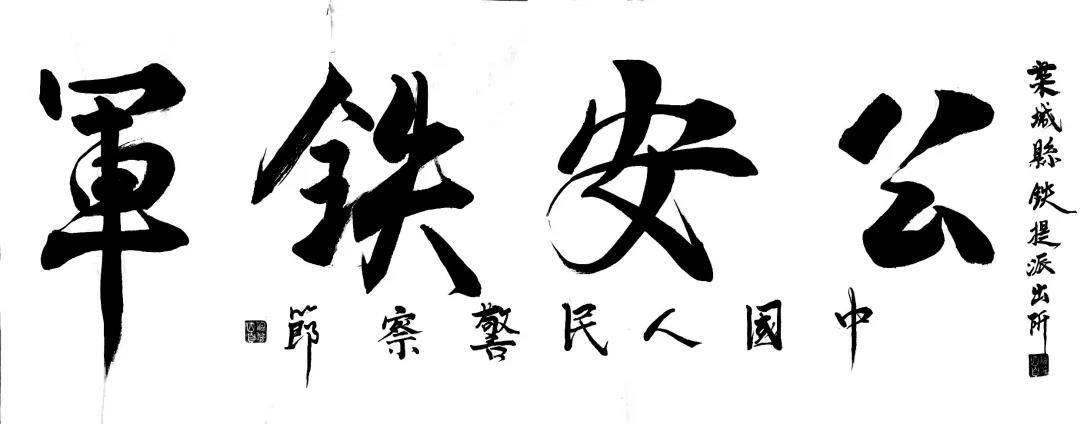 葉城縣鉄提派出所
公安鉄軍
中國人民警察節